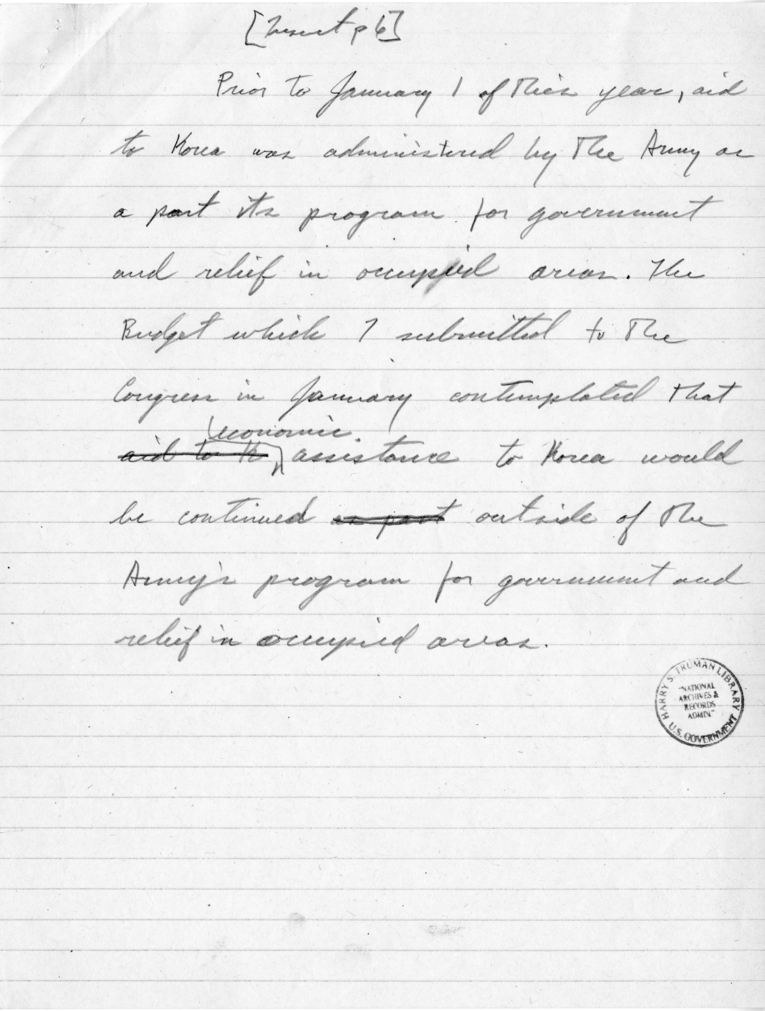 [Insert p 6]
Prior to January 1 of this year, aid
to Korea was administered by the Army as
a part its program for government
and relief in occupied areas. The
Budget which I submitted to the
Congress in January contemplated that
economic
aid to K assistance to Korea would
be continued as part outside of the
Army's program for government and
relief in occupied areas.
HARRY S. TRUMAN LIBRARY
"NATIONAL
ARCHIVES &
RECORDS
ADMIN."
U.S. GOVERNMENT